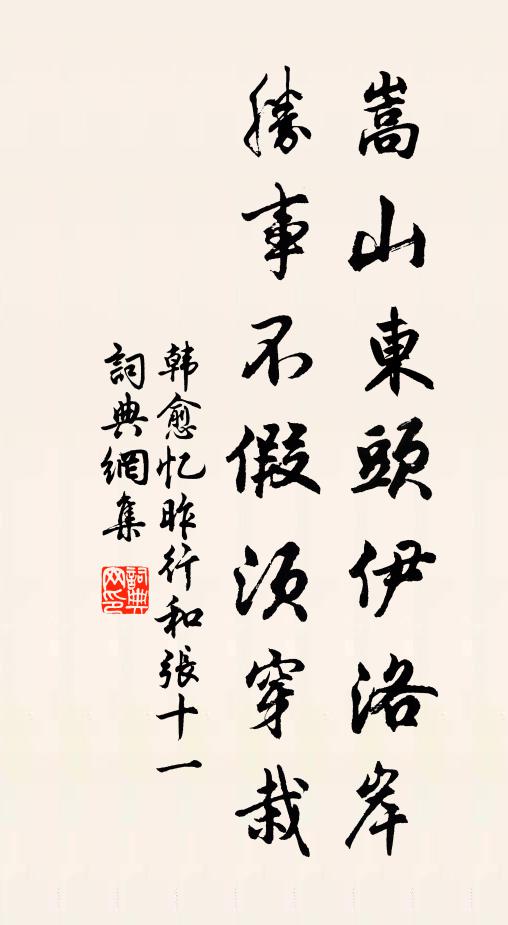 嵩山東頭伊洛岸
勝事不假須穿栽
韩愈忆昨行和張十一
詞典網集
詞典網印